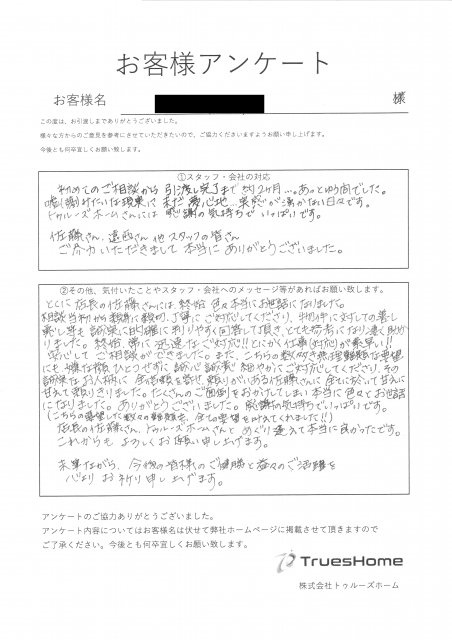 お客様アンケート
お客様名 様
この度は、お引渡しまでありがとうございました。
様々な方からのご意見を参考にさせていただきたいので、ご協力くださいますようお願い申し上げます。
今後とも何卒宜しくお願い致します。
①スタッフ・会社の対応
初めてのご相談から引渡し完了まで約2か月…。あっとゆう間でした。
嘘みたいな現実に まだ夢心地…実感が湧かない日々です。
トゥルーズホームさんには 感謝の気持ちで いっぱいです。
佐藤さん、 さん 他スタッフの皆さん
ご尽力いただきまして 本当に ありがとうございました。
②その他、気付いたことやスタッフ・会社へのメッセージ等があればお願い致します。
とくに 店長の佐藤さんには 終始 色々本当にお世話になりました。
相談当初から 親切、丁寧に ご対応してくださり、物件に対しての
も 誠実に明確に判りやすく回答して頂き、とても参考になり凄く助か
りました。終始 常に 迅速な ご対応!! とにかく仕事(対応)が素早い!!
安心して ご相談ができました。また、こちらの 数多き無理難題な要望
にも 嫌な顔 ひとつせずに 誠心誠意 細やかに ご対応してくださり、その
誠実な お人柄に 頼りがいがある佐藤さんに
甘えて頼りきりました。たくさんのご面倒をおかけしてしまい本当に色々とお世話
になりました。ありがとうございました。感謝の気持ちでいっぱいです。
(こちらの要望した数々の難題を、全ての要望を叶えてくれました!!)
店長の佐藤さん、トゥルーズホームさんと めぐり逢えて本当に良かったです。
これからも よろしくお願い申し上げます。
末筆ながら、今後の皆様のご健勝と益々のご活躍を
心より お祈り申し上げます。
アンケートのご協力ありがとうございました。
アンケート内容についてはお客様名は伏せて弊社ホームページに掲載させて頂きますので
ご了承ください。今後とも何卒宜しくお願い致します。
TruesHome
株式会社トゥルーズホーム